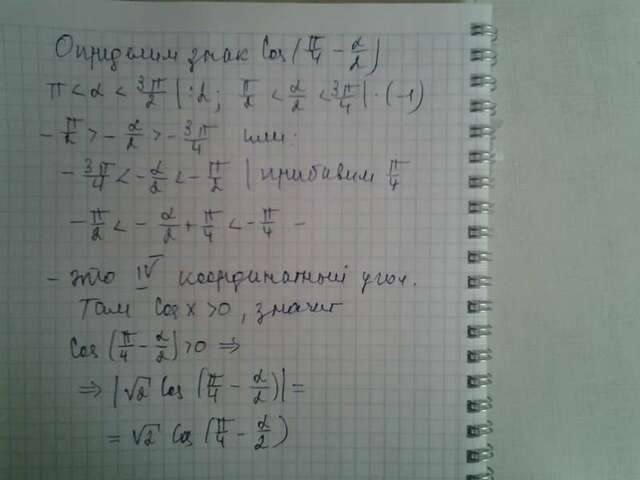 Определим знак Cos(π/4 - α/2)
π < α < 3π/2 | :2; π/2 < α/2 < 3π/4 | · (-1)
- π/2 > - α/2 > - 3π/4 или:
- 3π/4 < - α/2 < - π/2 | прибавим π/4
- π/2 < - α/2 + π/4 < - π/4 -
- это IV координатный угол.
Там Cos x > 0, значит
Cos(π/4 - α/2) > 0 ⇒
⇒ |√2 Cos(π/4 - α/2)| =
= √2 Cos(π/4 - α/2)